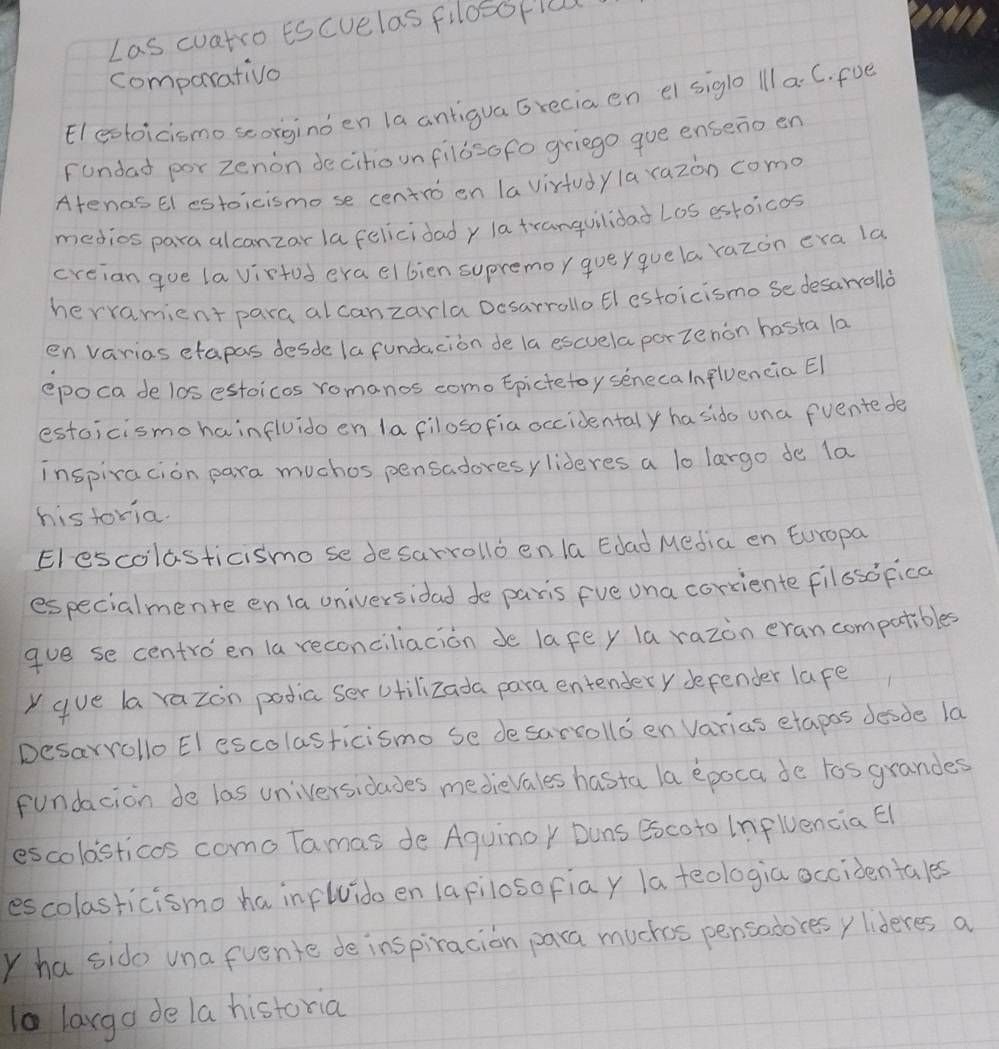 Las cuatro Escuelas filosofica
comparativo
El estoicismo seorgino en la antigua Grecia en el siglo III a.C. fue
Fundad por zenon de citio un filósofo griego que enseño en
Atenas El estoicismo se centró en la virtud y la razón como
medios para alcanzar la felicidad y la tranquilidad Los estoicos
creian que la virtud era el bien supremo y que y que la razón era la
herramient para alcanzarla Desarrollo El estoicismo se desarrolló
en varias etapas desde la fundación de la escuela por zenón hasta la
época de los estoicos romanos como Epicteto y séneca Influencia El
estoicismo ha influido en la filosofia occidental y ha sido una fuente de
inspiración para muchos pensadores y lideres a lo largo de la
historia.
El escolasticismo se desarrolló en la Edad Media en Europa
especialmente en la universidad de paris fue una corriente filosófica
que se centró en la reconciliación de la fe y la razón eran compatibles
y que la razón podia ser utilizada para entender y defender la fe
Desarrollo El escolasticismo se desarrolló en varias etapas desde la
fundacion de las universidades medievales hasta la época de los grandes
escolásticos como Tamas de Aquino y Duns Escoto Influencia El
escolasticismo ha influido en la filosofia y la teologia occidentales
y ha sido una fuente de inspiración para muchos pensadores y lideres a
lo largo de la historia